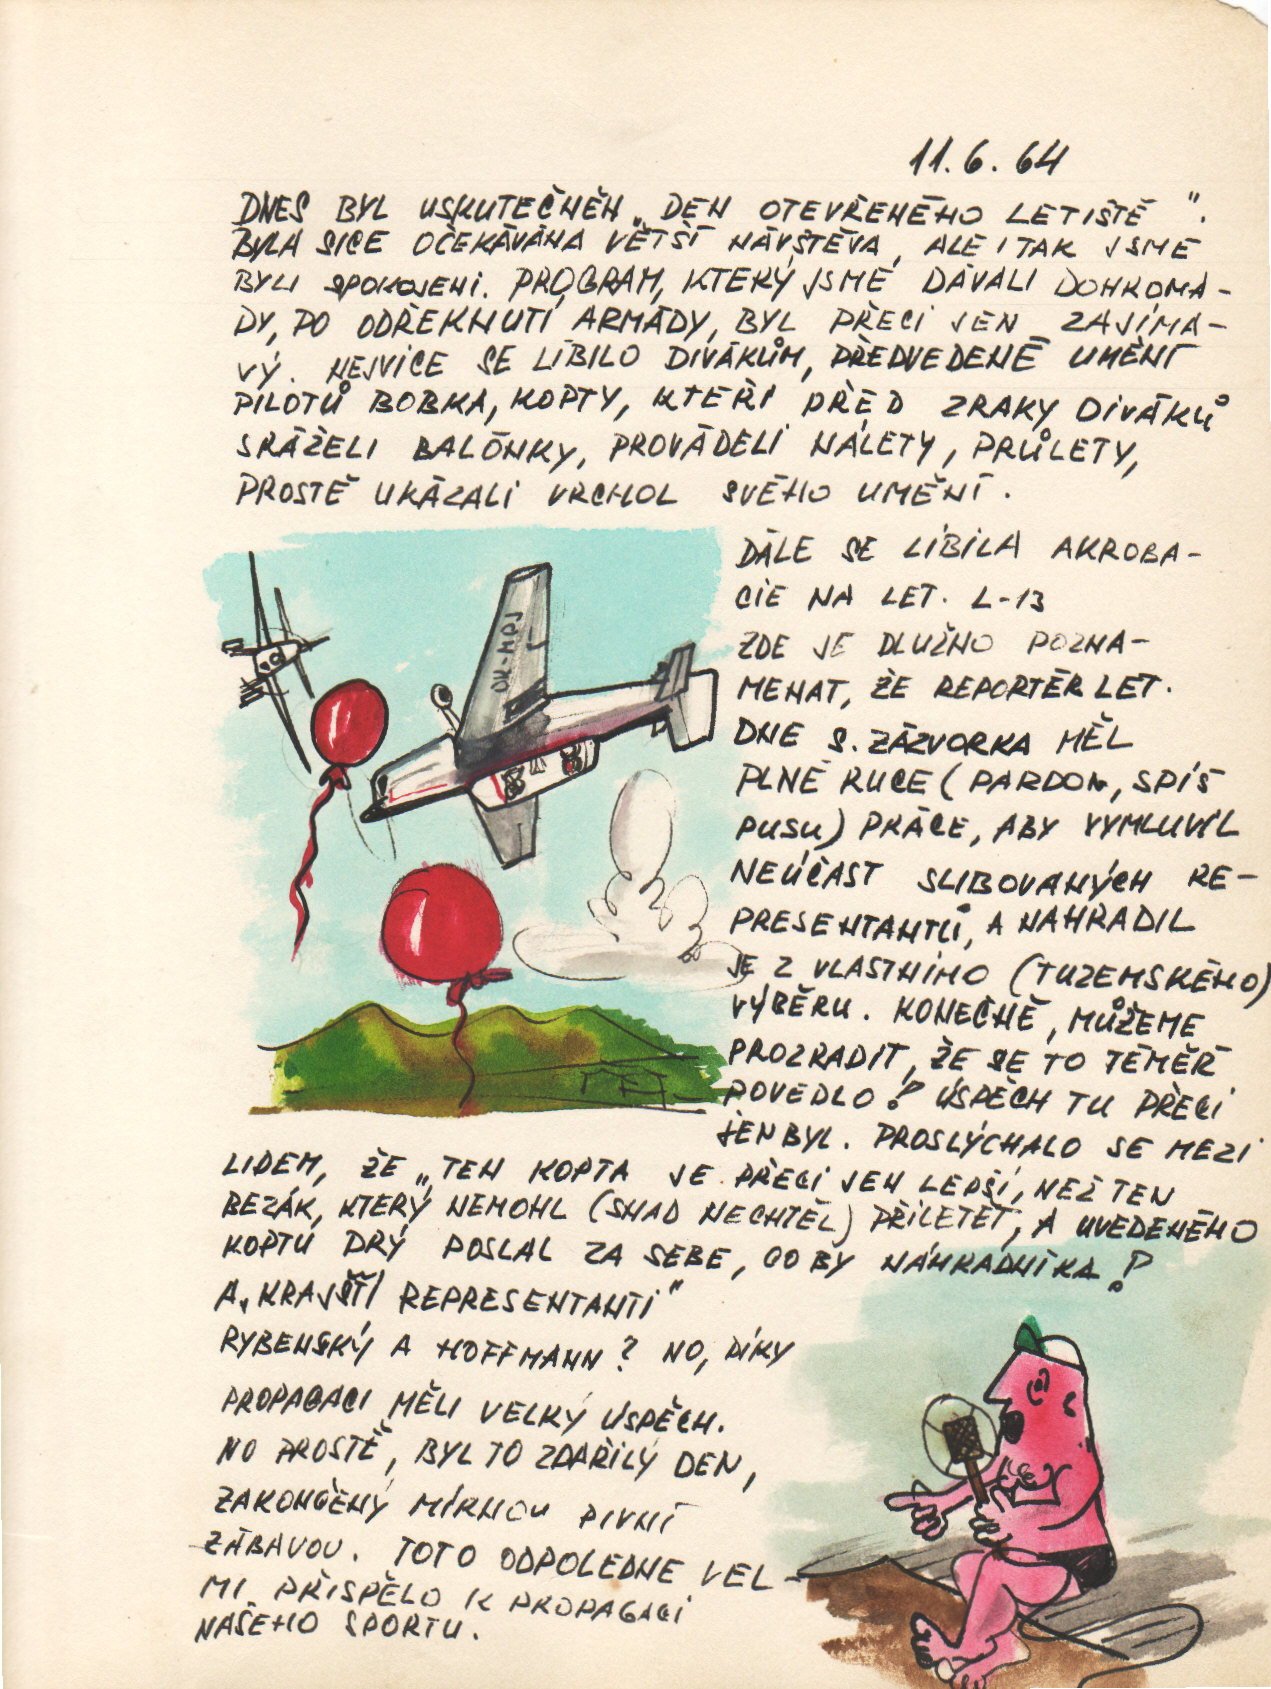 11.6.64
DNES BYL USKUTEČNĚN „DEN OTEVŘENÉHO LETIŠTĚ".
BYLA SICE OČEKÁVÁNA VĚTŠÍ NÁVŠTĚVA, ALE I TAK JSME
BYLI SPOKOJENI. PROGRAM, KTERÝ JSME DÁVALI DOHROMA-
DY, PO ODŘEKNUTÍ ARMÁDY, BYL PŘECI JEN ZAJÍMA-
VÝ. NEJVÍCE SE LÍBILO DIVÁKŮM, PŘEDVEDENÉ UMĚNÍ
PILOTŮ BOBKA, KOPTY, KTEŘÍ PŘED ZRAKY DIVÁKŮ
SRÁŽELI BALÓNKY, PROVÁDELI NÁLETY, PRŮLETY,
PROSTĚ UKÁZALI VRCHOL SVÉHO UMĚNÍ.
DÁLE SE LÍBILA AKROBA-
CIE NA LET. L-13
ZDE JE DLUŽNO POZNA-
MENAT, ŽE REPORTÉR LET.
DNE S. ZÁZVORKA MĚL
PLNÉ RUCE (PARDON, SPÍŠ
PUSU) PRÁCE, ABY VYMLUVIL
NEÚČAST SLIBOVANÝCH RE-
PRESENTANTŮ, A NAHRADIL
JE Z VLASTNÍHO (TUZEMSKÉHO)
VÝBĚRU. KONEČNĚ, MŮŽEME
PROZRADIT, ŽE SE TO TÉMĚŘ
POVEDLO! ÚSPĚCH TU PŘECI
JEN BYL. PROSLÝCHALO SE MEZI
LIDEM, ŽE „TEN KOPTA JE PŘECI JEN LEPŠÍ, NEŽ TEN
BEZÁK, KTERÝ NEMOHL (SNAD NECHTĚL) PŘILETĚT, A UVEDENÉHO
KOPTU PRÝ POSLAL ZA SEBE, CO BY NÁHRADNÍKA!
A „KRAJŠTÍ REPRESENTANTI"
RYBENSKÝ A HOFFMANN? NO, DÍKY
PROPAGACI MĚLI VELKÝ ÚSPĚCH.
NO PROSTĚ, BYL TO ZDAŘILÝ DEN,
ZAKONČENÝ MÍRNOU PIVNÍ
ZÁBAVOU. TOTO ODPOLEDNE VEL-
MI PŘISPĚLO K PROPAGACI
NAŠEHO SPORTU.